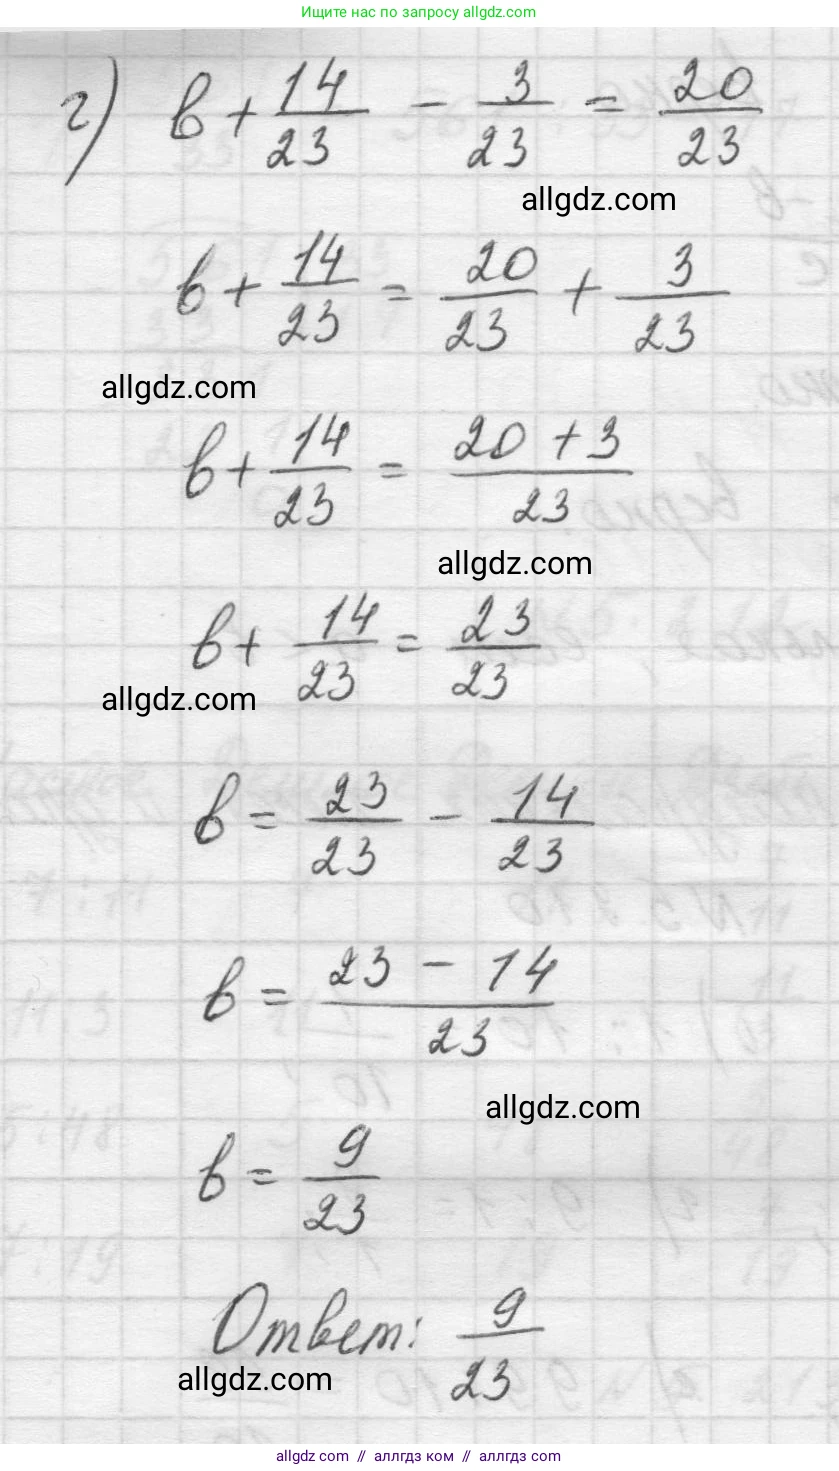 Ищите нас по запросу allgdz.com
г) в + 14/23 - 3/23 = 20/23
allgdz.com
в + 14/23 = 20/23 + 3/23
allgdz.com
в + 14/23 = 20 + 3/23
allgdz.com
в + 14/23 = 23/23
allgdz.com
в = 23/23 - 14/23
в = 23 - 14/23
allgdz.com
в = 9/23
Ответ: 9/23
allgdz.com
allgdz com // аллгдз ком // аллгдз.com